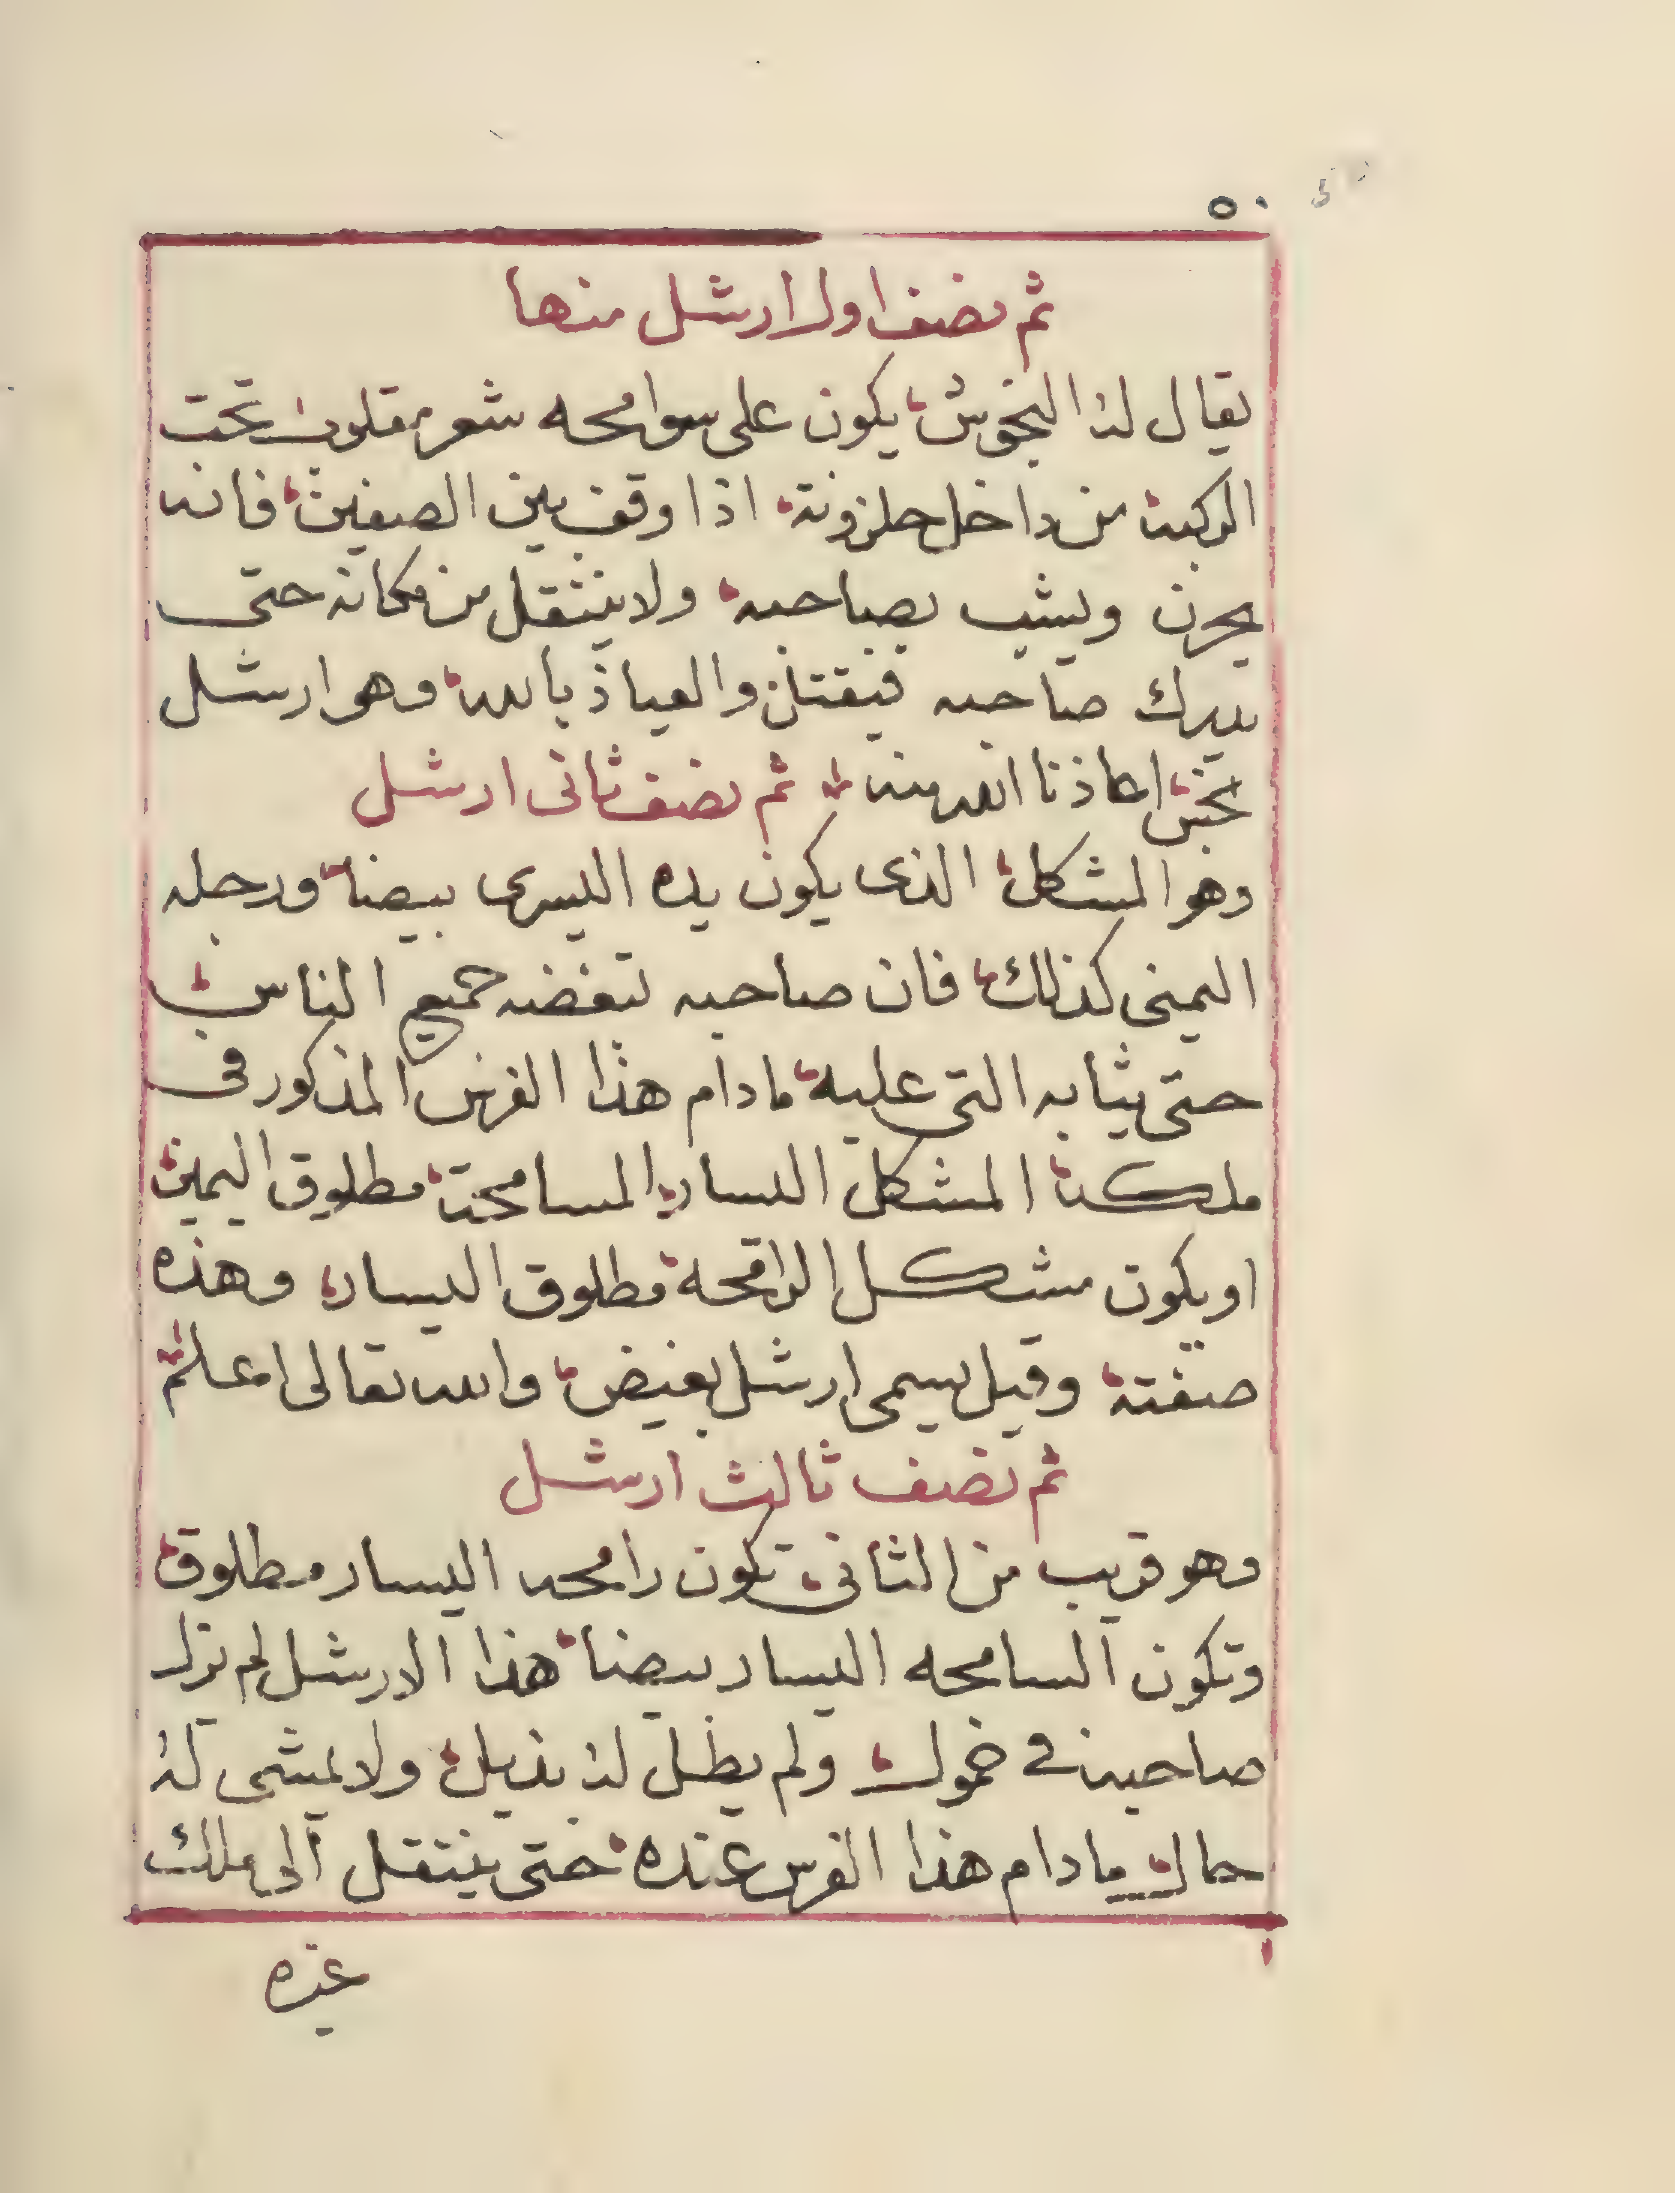 ٥٠
ثم نصف اول ارشل منها
يقال له النجوس يكون على سوامحه شعر مقلوب تحت
الركبة من داخل حلزونة اذا وقف بين الصفين فانه
يحرن ويشب بصاحبه ولا ينتقل من مكانه حتى
يدرك صاحبه فيقتل والعياذ بالله وهو ارشل
نجس اعاذنا الله منه ثم نصف ثانى ارشل
وهو المشكل الذى يكون يده اليسرى بيضا ورجله
اليمنى كذلك فان صاحبه تبغضه جميع الناس
حتى ثيابه التى عليه ما دام هذا الفرس المذكور فى
ملكه المشكل اليسار المسامحة مطلوق اليمين
او يكون مشكل الرامحه مطلوق اليسار وهذه
صفته وقيل يسمى ارشل بغيض والله تعالى اعلم
ثم نصف ثالث ارشل
وهو قريب من الثانى تكون رامحه اليسار مطلوق
وتكون السامحه اليسار بيضا هذا الارشل لم يزل
صاحبه فى خمول ولم يطل له بديل ولا يمشى له
حال ما دام هذا الفرس عنده حتى ينتقل الى ملك
غيره